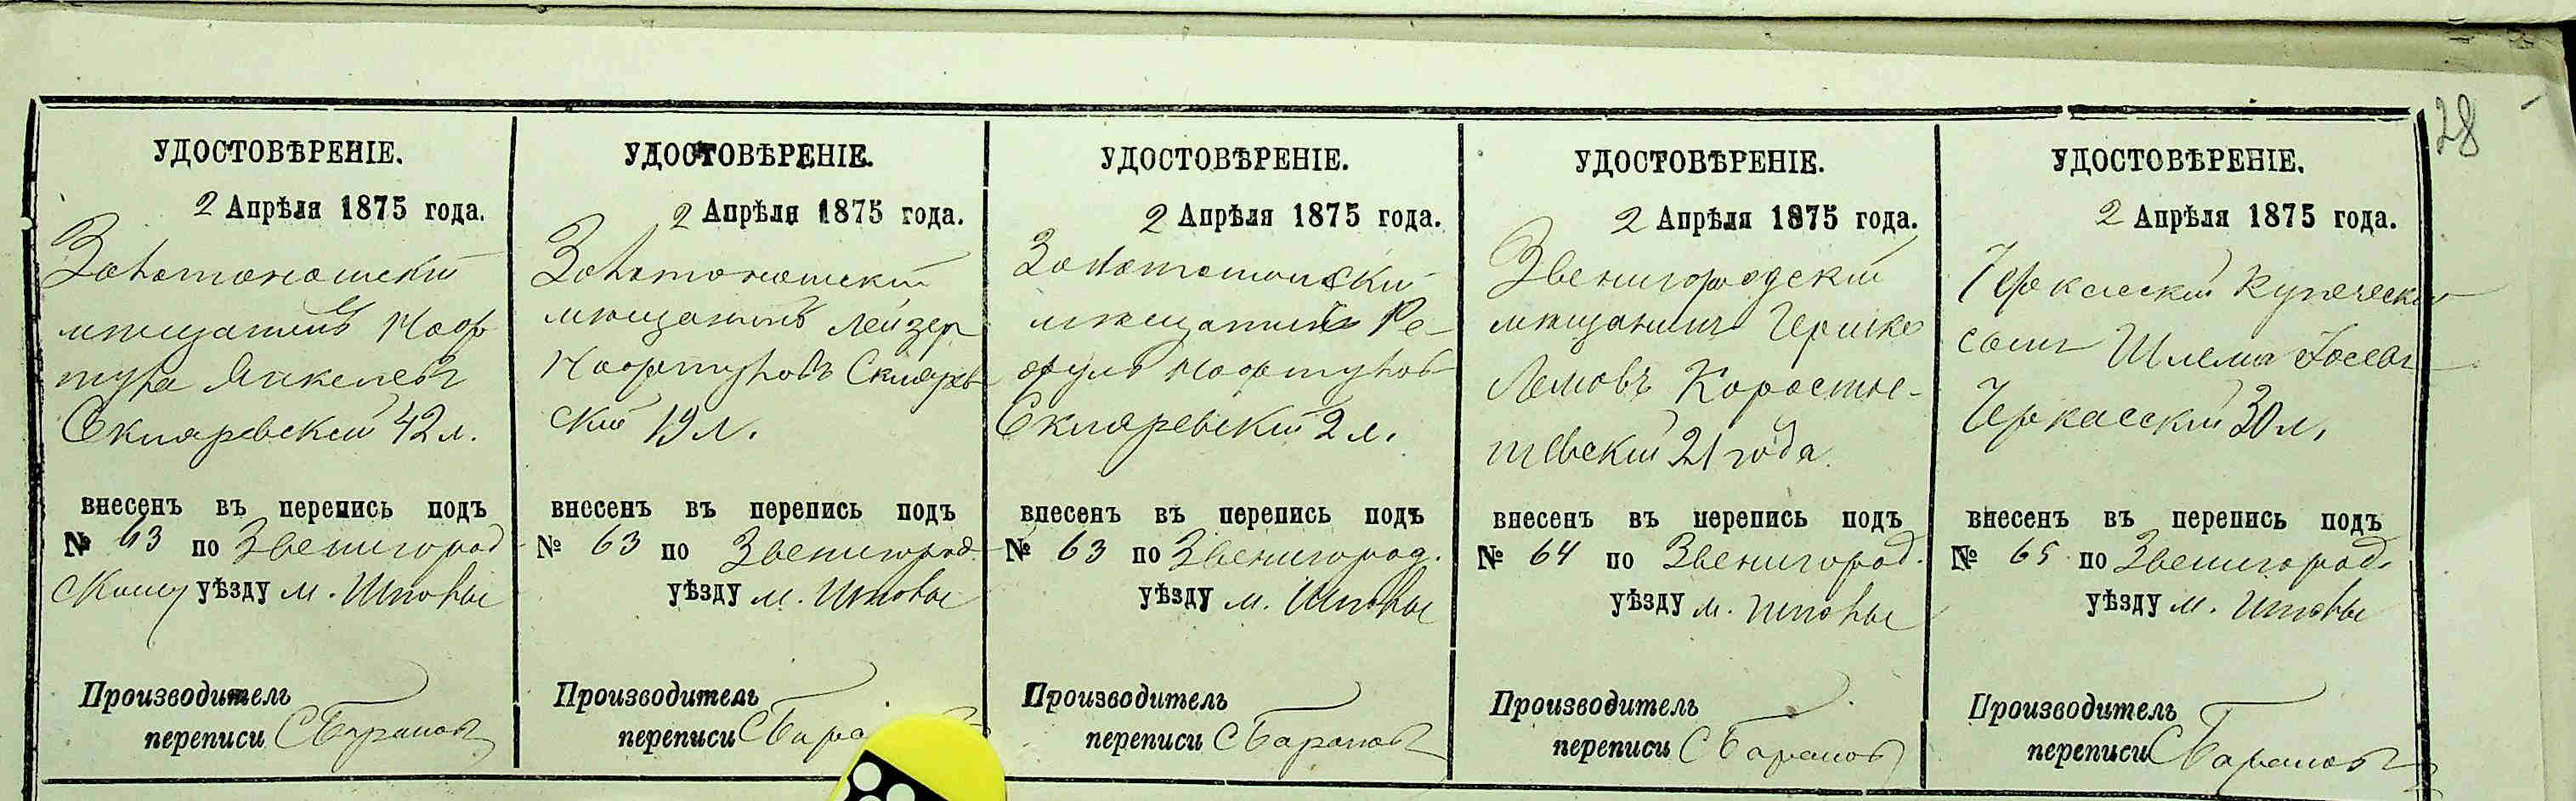 28
УДОСТОВѢРЕНІЕ.
2 Апрѣля 1875 года.
Золотоношскій
мѣщанинъ Нафтула Янкелевъ
Скляревскій 42 л.
внесенъ въ перепись подъ
№ 63 по Звенигород
скому уѣзду м. Шполы
Производитель
переписи СБарановъ
УДОСТОВѢРЕНІЕ.
2 Апрѣля 1875 года.
Золотоношскій
мѣщанинъ Лейзер
Нафтуловъ Скляревскій 19 л.
внесенъ въ перепись подъ
№ 63 по Звенигород
уѣзду м. Шполы
Производитель
переписи СБара
УДОСТОВѢРЕНІЕ.
2 Апрѣля 1875 года.
мѣщанинъ Ре-
фулъ Нафтулов
Скляревскій 2 л.
внесенъ въ перепись подъ
№ 63 по Звенигород.
уѣзду м. Шполы
Производитель
переписи СБарановъ
УДОСТОВѢРЕНІЕ.
2 Апрѣля 1875 года.
Звенигородскій
мѣщанинъ Гершко
Лемовъ Коросты-
шевскій 21 года.
внесенъ въ перепись подъ
№ 64 по Звенигород.
уѣзду м. Шполы
Производитель
переписи СБаранов
УДОСТОВѢРЕНІЕ.
2 Апрѣля 1875 года.
Черкасскій купеческій
сынъ Шлема Іосевъ
Черкасскій 30 л.
внесенъ въ перепись подъ
№ 65 по Звенигород.
уѣзду м. Шполы
Производитель
переписи СБарановъ